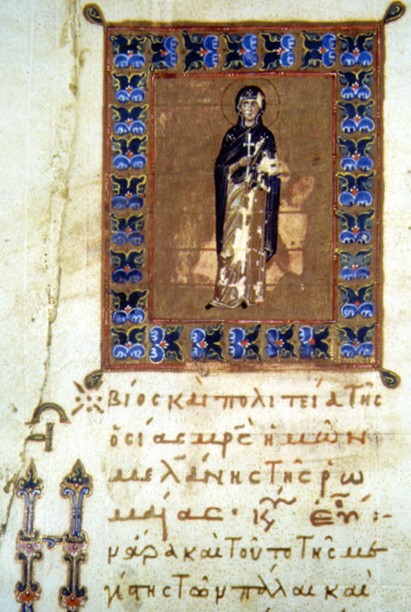 βίος καὶ πολιτεία τῆς
ὁσίας μρ̅ς ἡμῶν
μελάνης τῆς ῥω
μαίας·
Ην ἄρα καὶ τοῦτο τῆς με
γίστης τῶν πάλαι καὶ